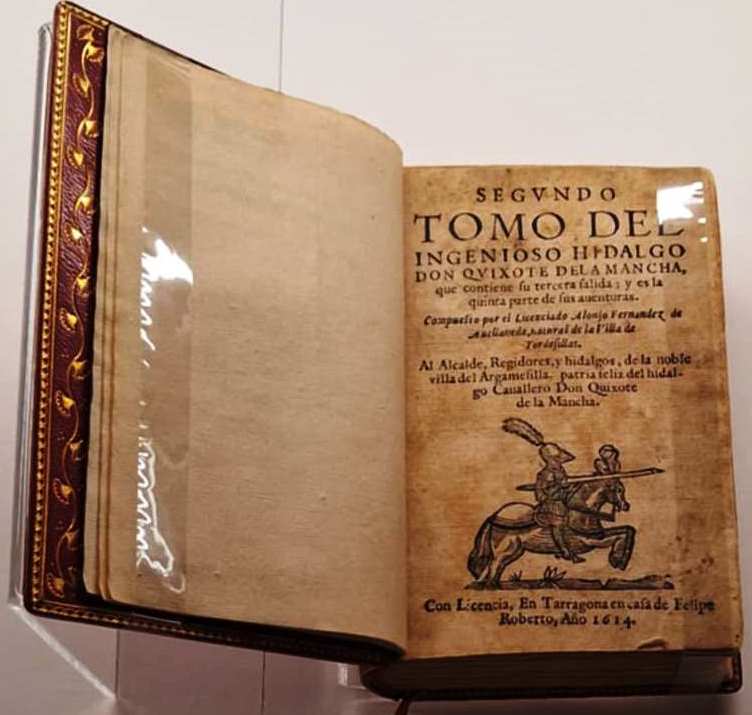 SEGVNDO
TOMO DEL
INGENIOSO HIDALGO
DON QVIXOTE DELA MANCHA,
que contiene ſu tercera ſalida : y es la
quinta parte de ſus auenturas.
Compueſto por el Licenciado Alonſo Fernandez de
Auellaneda, natural de la Villa de
Tordeſillas.
Al Alcalde, Regidores, y hidalgos, de la noble
villa del Argameſilla, patria feliz del hidal-
go Cauallero Don Quixote
de la Mancha.
Con Licencia, En Tarragona en caſa de Felipe
Roberto, Año 1614.